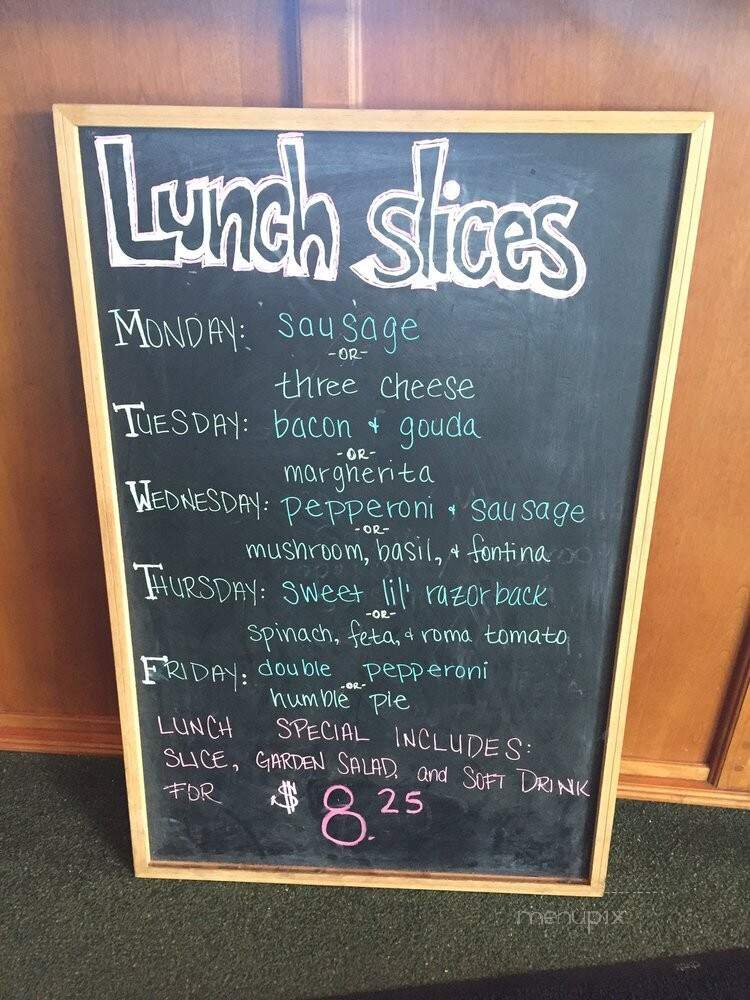 Lunch slices
MONDAY: sausage
-OR-
three cheese
TUESDAY: bacon & gouda
-OR-
margherita
WEDNESDAY: pepperoni & sausage
-OR-
mushroom, basil, & fontina
THURSDAY: sweet lil' razorback
-OR-
spinach, feta, & roma tomato
FRIDAY: double pepperoni
-OR-
humble pie
LUNCH SPECIAL INCLUDES:
SLICE, GARDEN SALAD, and SOFT DRINK
FOR $8.25
menupix